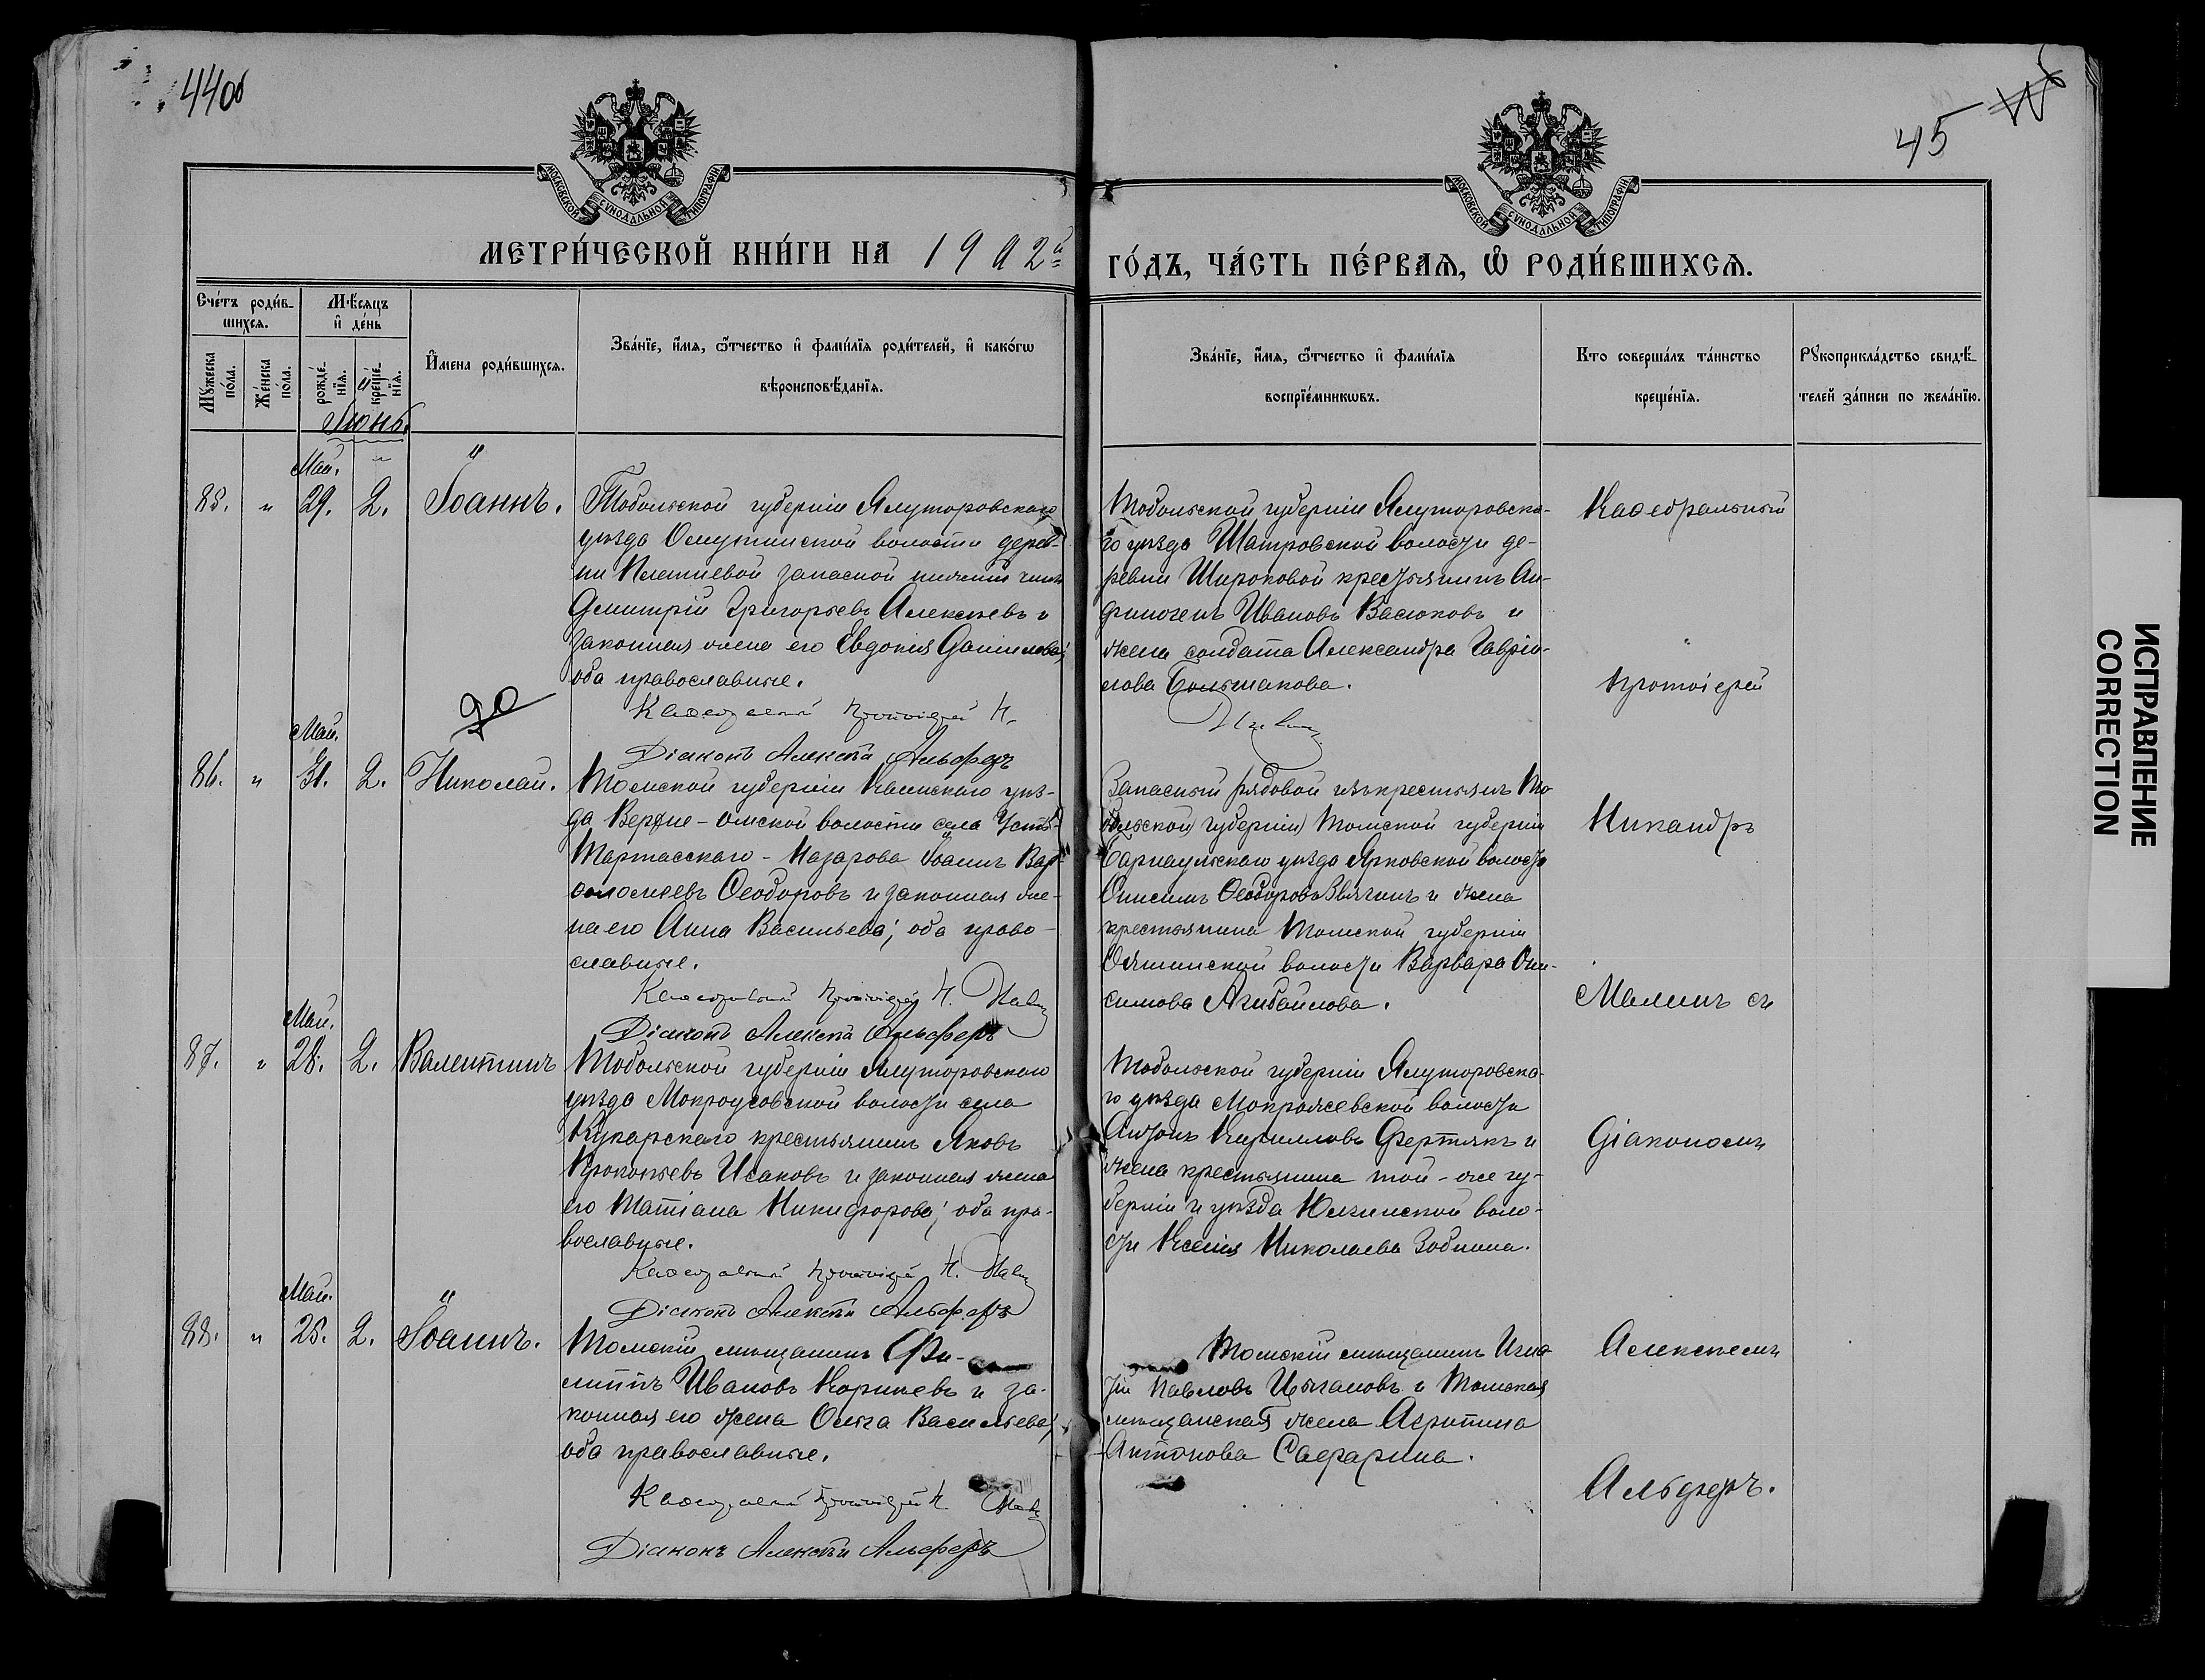 44об
45
МОСКОВСКОЙ СУНОДАЛЬНОЙ ТИПОГРАФІИ
МОСКОВСКОЙ СУНОДАЛЬНОЙ ТИПОГРАФІИ
МЕТРИ́ЧЕСКОЙ КНИ́ГИ НА 1902й
ГО́ДЪ, ЧА́СТЬ ПЕ́РВАѦ, Ѡ РОДИ́ВШИХСѦ.
Сче́тъ роди́в-
шихсѧ.
Мꙋжеска по́ла.
Же́нска по́ла.
Мѣ́сяцъ
и де́нь
рожде́-
нїѧ.
креще́-
нїѧ.
И҆мена роди́вшихсѧ.
Зва́нїе, и҆́мѧ, ѻ҆́тчество и҆ фами́лїѧ роди́телей, и҆ како́гѡ
вѣроисповѣ́данїѧ.
Зва́нїе, и҆́мѧ, ѻ҆́тчество и҆ фами́лїѧ
воспрїе́мникѡвъ.
Кто соверша́лъ та́инство
креще́нїѧ.
Рꙋкоприкла́дство свидѣ́-
телей за́писи по жела́нїю.
Іюнь.
Май.
85. " 29. 2. Іоаннъ.
Тобольской губерніи Ялуторовскаго
уѣзда Омутинской волости дерев-
ни Плетневой запасной нижній чинъ
Димитрій Григорьевъ Алексѣевъ и
законная жена его Евдокія Данилова;
оба православные.
Каѳедральный Протоіерей Н.
Діаконъ Алексѣй Альферъ
Тобольской губерніи Ялуторовска-
го уѣзда Шатровской волости де-
ревни Широковой крестьянинъ Ан-
финогенъ Ивановъ Васюковъ и
жена солдата Александра Гаврі-
лова Большакова.
Май.
86. " 31. 2. Николай.
Томской губерніи Каинскаго уѣз-
да Верхне-омской волости села Усть-
Тартасскаго-Назарова Іоаннъ Вар-
ѳоломеевъ Ѳеодоровъ и законная же-
на его Анна Васильева; оба право-
славные.
Каѳедральный Протоіерей Н.
Діаконъ Алексѣй Альферъ
Запасный рядовой изъ крестьянъ То-
больской губерніи Томской губерніи
Барнаульскаго уѣзда Ярковской волости
Онисимъ Ѳеодоровъ Звягинъ и жена
крестьянина Томской губерніи
Ояшинской волости Варвара Они-
симова
Май.
87. " 28. 2. Валентинъ
Тобольской губерніи Ялуторовскаго
уѣзда Мокроусовской волости села
Кукарскаго крестьянинъ Яковъ
Прокопьевъ Исаковъ и законная жена
его Татіана Никифорова; оба пра-
вославные.
Каѳедральный Протоіерей Н.
Діаконъ Алексѣй Альферъ
Тобольской губерніи Ялуторовска-
го уѣзда волости
Антонъ Кирилловъ и
жена крестьянина той-же гу-
берніи и уѣзда воло-
сти Ксенія Николаева Зобнина.
Май.
88. " 25. 2. Іоаннъ.
Томскій мѣщанинъ Фи-
липпъ Ивановъ и за-
конная его жена Ольга Васильева;
оба православные.
Каѳедральный Протоіерей Н.
Діаконъ Алексѣй Альферъ
Томскій мѣщанинъ Игна-
тій Павловъ Цыгановъ и Томская
мѣщанская жена Агрипина
Антонова Сафарина.
Каѳедральный
Протоіерей
Никандръ
Малинъ съ
Діакономъ
Алексѣемъ
Альферъ.
ИСПРАВЛЕНИЕ
CORRECTION